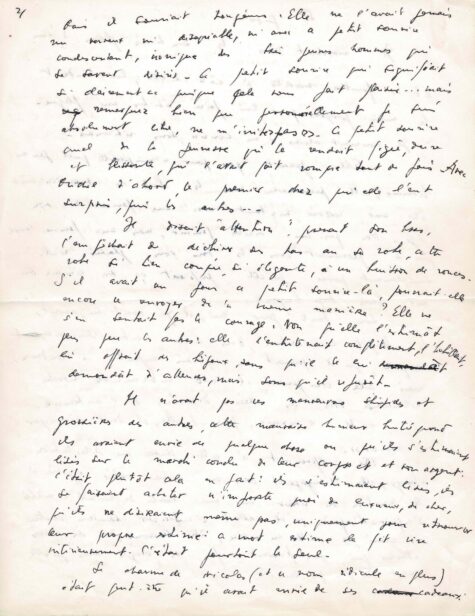 2/
Mais il souriait toujours. Elle ne l'avait jamais
vu ni désagréable, ni avec ce petit sourire
condescendant, ironique des très jeunes hommes qui
se savent désirés. Ce petit sourire qui signifiait
si clairement ce puisque cela vous fait plaisir... mais
remarquez bien que personnellement je suis
absolument libre, ne m'intéresse. Ce petit sourire
cruel de la jeunesse qui le rendait figé, dure
et blessante, qui l'avait fait rompre tant de fois. Avec
d'abord, le premier chez qui elle l'eut
surpris, puis les autres...
"Il disent "attention" prenant son bras,
l'empêchant de déchirer son bas ou sa robe, cette
robe si bien coupée, si élégante, à un buisson de ronces.
S'il avait un jour ce petit sourire-là, pourrait-elle
encore le renvoyer de la même manière? Elle ne
s'en sentait pas le courage. Non qu'elle l'estimât
plus que les autres: elle l'entretenait complètement, l'habillait,
lui offrait des bijoux, sans qu'il le lui
demandât d'ailleurs, mais sans qu'il refusât.
Il n'avait pas ces manoeuvres stupides et
grossières des autres, cette mauvaise humeur butée quand
ils avaient envie de quelque chose ou qu'ils s'estimaient
lésés sur le marché conclu de leur corps et et son argent.
c'était plutôt cela en fait: ils s'estimaient lésés, ils
se faisaient acheter n'importe quoi de luxueux, de cher,
qu'ils ne désiraient même pas, uniquement pour retrouver
leur propre estime: ce mot estime la fit rire
intérieurement. C'était pourtant le seul.
Le charme de Nicolas (et ce nom ridicule en plus)
était peut-être qu'il avait envie de ses cadeaux.